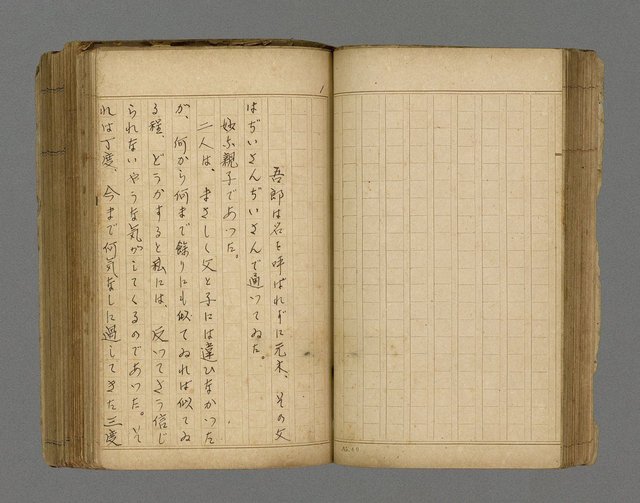 吾郎は名を呼ばれずに元木、その父
はぢいさんぢいさんで通つてゐた。
妙な親子であつた。
二人は、まさしく父と子には違ひなかつた
が、何から何まで餘りにも似てゐれば似てゐ
る程、どうかすると私には、反つてさう信じ
られないやうな気がしてくるのであつた。そ
れは丁度、今まで何気なしに過してきた三度
1